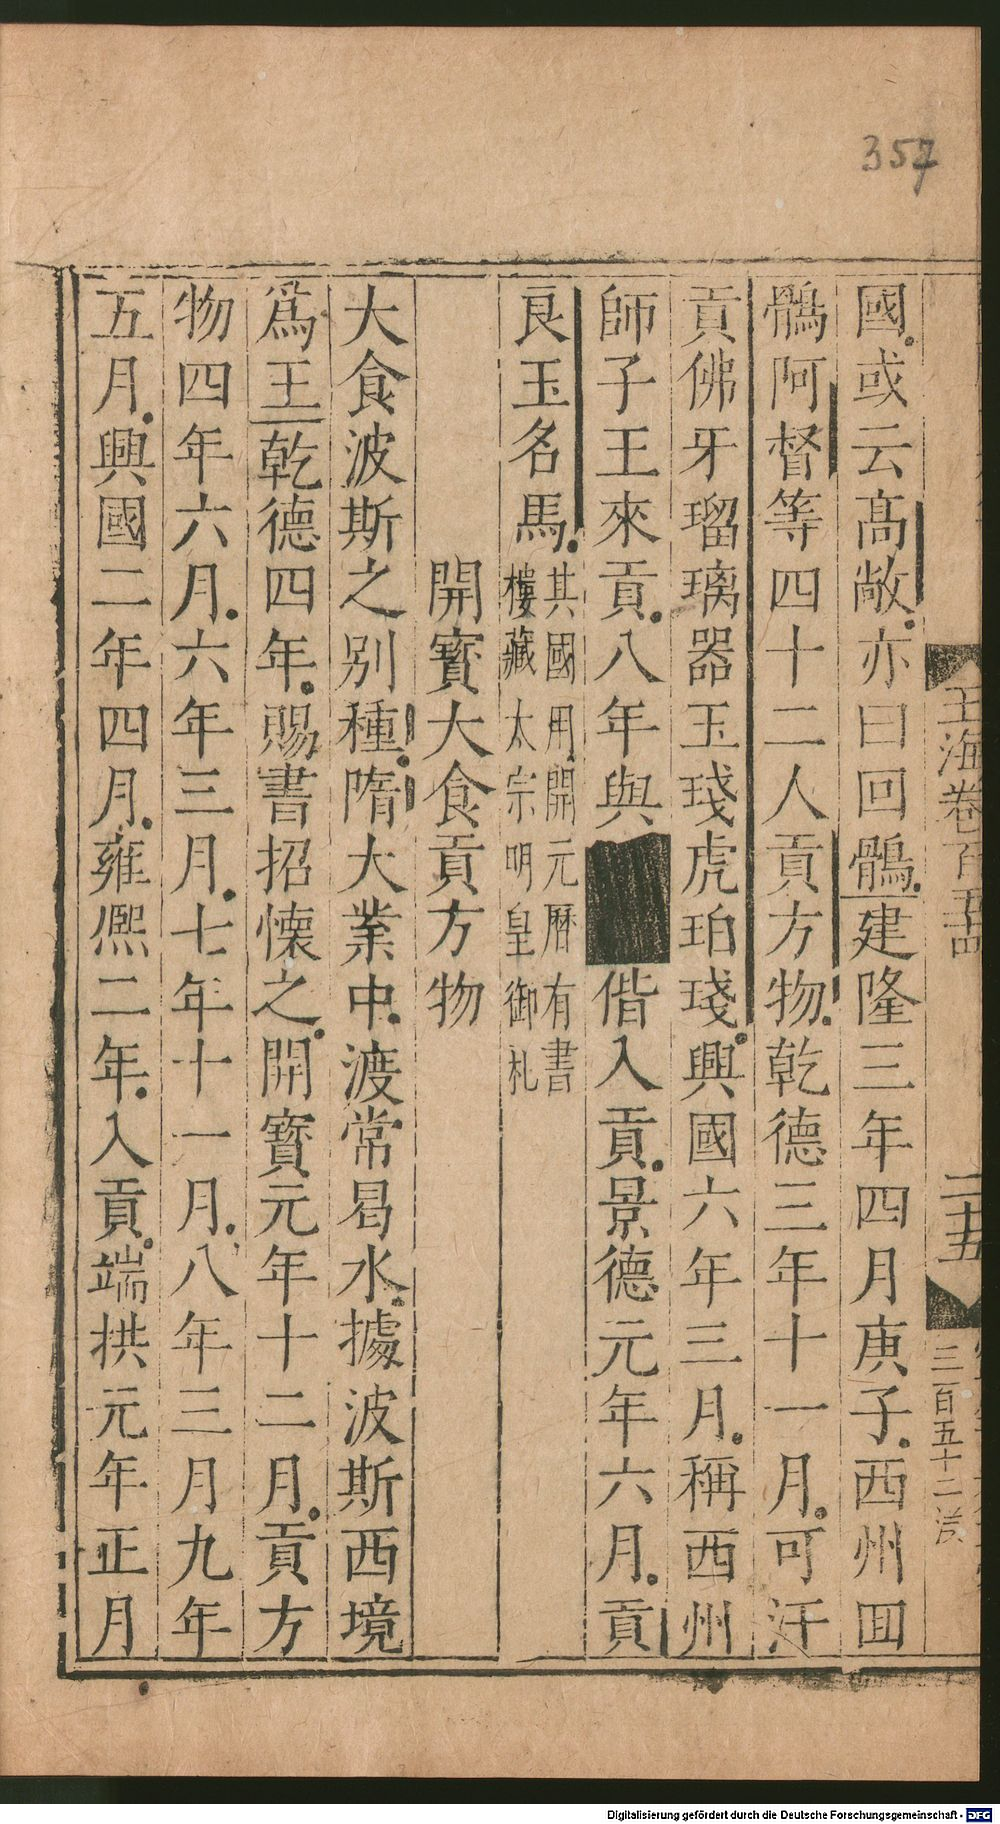 357
玉海卷百五十四
二十五
三百五十二
國或云髙敞亦曰回鶻建隆三年四月庚子西州回
鶻阿督等四十二人貢方物乾德三年十一月可汗
貢佛牙瑠璃器玉琖虎珀琖興國六年三月稱西州
師子王來貢八年與偕入貢景德元年六月貢
良玉名馬其國用開元曆有書
樓藏太宗明皇御札
開寳大食貢方物
大食波斯之别種隋大業中渡常曷水據波斯西境
爲王乾德四年賜書招懷之開寳元年十二月貢方
物四年六月六年三月七年十一月八年三月九年
五月興國二年四月雍熈二年入貢端拱元年正月
Digitalisierung gefördert durch die Deutsche Forschungsgemeinschaft - DFG